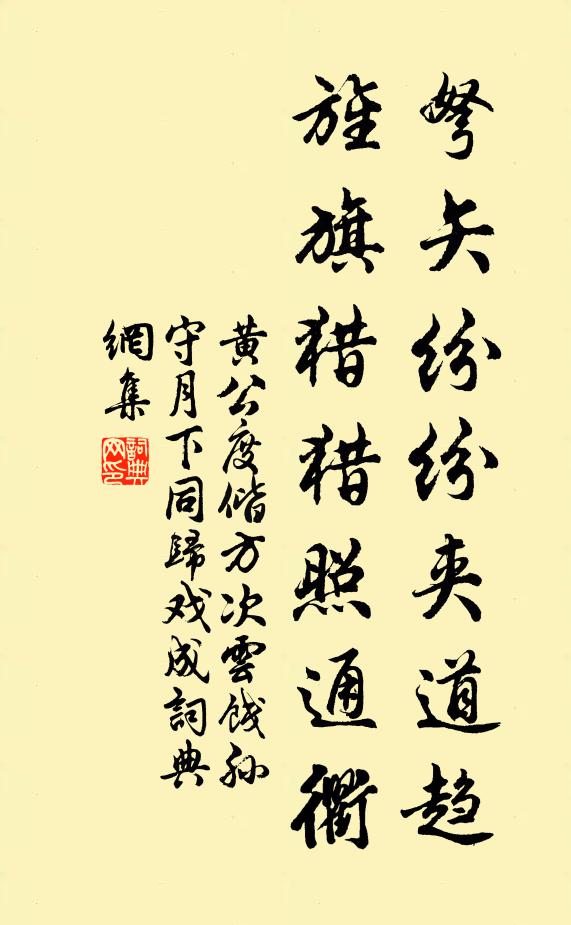 弩矢纷纷夹道趋
旌旗猎猎照通衢
黄公度偕方次雲饯孙
守月下同歸戏成詞典
網集
詞典網印